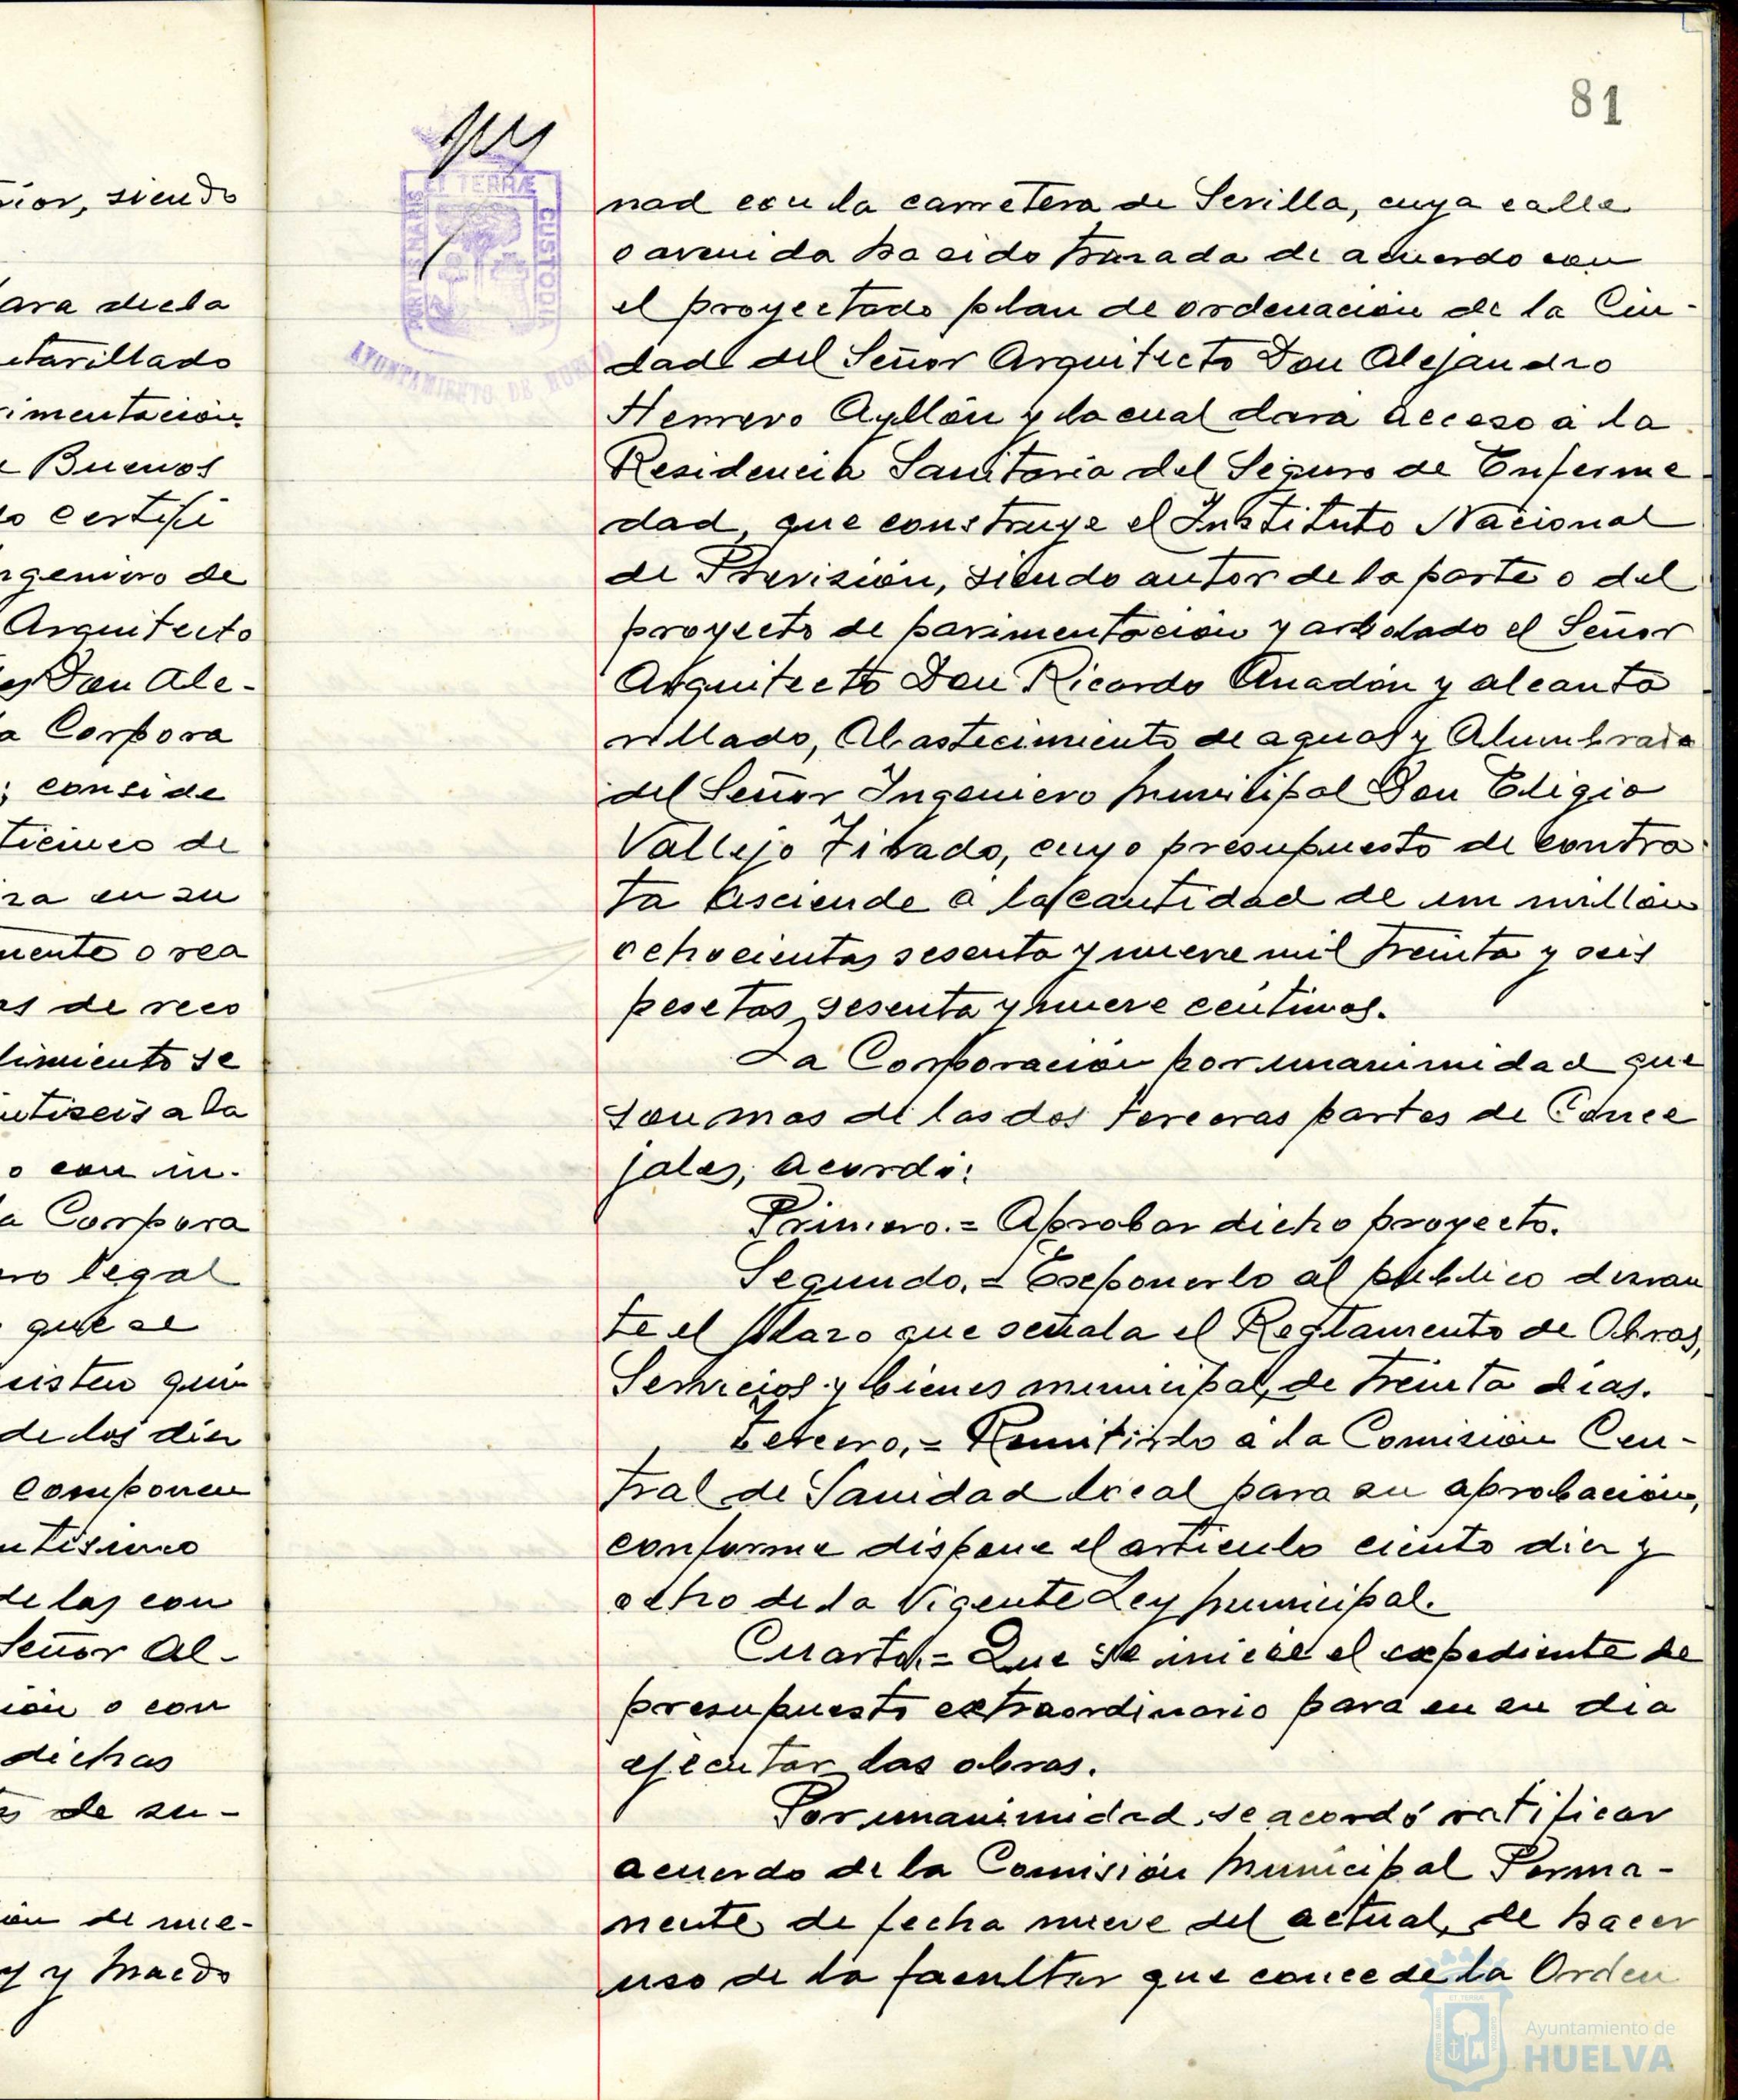 rior, siendo
ara dicha
ctarillado
imentación.
e Buenos
lo certifi
ngeniero de
Arquitecto
es Don Ale-
a Corpora
; conside
ticinco de
ra en su
mente o rea
as de reco
limiento se
ntiseis a la
o con in-
a Corpora
ro legal
que se
sisten quin
de los diez
componen
ntisinco
de las con
Señor Al-
ión o con
dichas
de su-
ón de nue-
y y Macdo
81
ET TERRÆ
PORTUS MARIS
CUSTODIA
AYUNTAMIENTO DE HUELVA
nad con la carretera de Sevilla, cuya calle
o avenida ha sido trazada de acuerdo con
el proyectado plan de ordenación de la Ciu-
dad del Señor Arquitecto Don Alejandro
Herrero Ayllón y la cual dará acceso á la
Residencia Sanitaria del Seguro de Enferme
dad, que construye el Instituto Nacional
de Previsión, siendo autor de la parte o del
proyecto de pavimentación y arbolado el Señor
Arquitecto Don Ricardo Anadón y alcanta
rillado, Abastecimiento de aguas y Alumbrado
del Señor Ingeniero Municipal Don Eligio
Vallejo Tirado, cuyo presupuesto de contra
ta asciende a la cantidad de un millón
ochocientas sesenta y nueve mil treinta y seis
pesetas, sesenta y nueve centimos.
La Corporación por unanimidad que
son mas de las dos terceras partes de Conce
jales, acordó:
Primero.= Aprobar dicho proyecto.
Segundo.= Exponerlo al publico duran
te el plazo que señala el Reglamento de Obras,
Servicios y bienes municipal, de treinta dias.
Tercero.= Remitirlo á la Comisión Cen-
tral de Sanidad local para su aprobación,
conforme dispone el articulo ciento diez y
ocho de la Vigente Ley Municipal.
Cuarto.= Que se inicie el expediente de
presupuesto extraordinario para en su dia
ejecutar las obras.
Por unanimidad, se acordó ratificar
acuerdo de la Comisión Municipal Perma-
nente de fecha nueve del actual, de hacer
uso de la facultar que concede la Orden
Ayuntamiento de
HUELVA